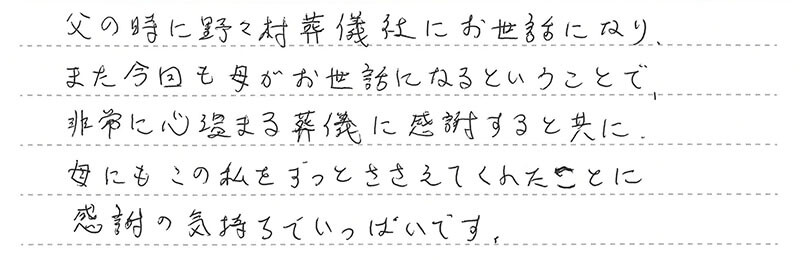 父の時に野々村葬儀社にお世話になり、
また今回も母がお世話になるということで、
非常に心温まる葬儀に感謝すると共に、
母にもこの私をずっとささえてくれたことに
感謝の気持ちでいっぱいです。